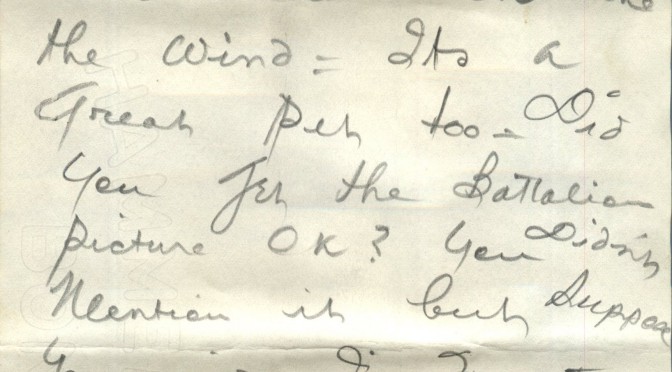 the Wind = Its a
Great Pet too - Did
You get the Battalion
picture OK? You Didn't
Mention it but Suppose